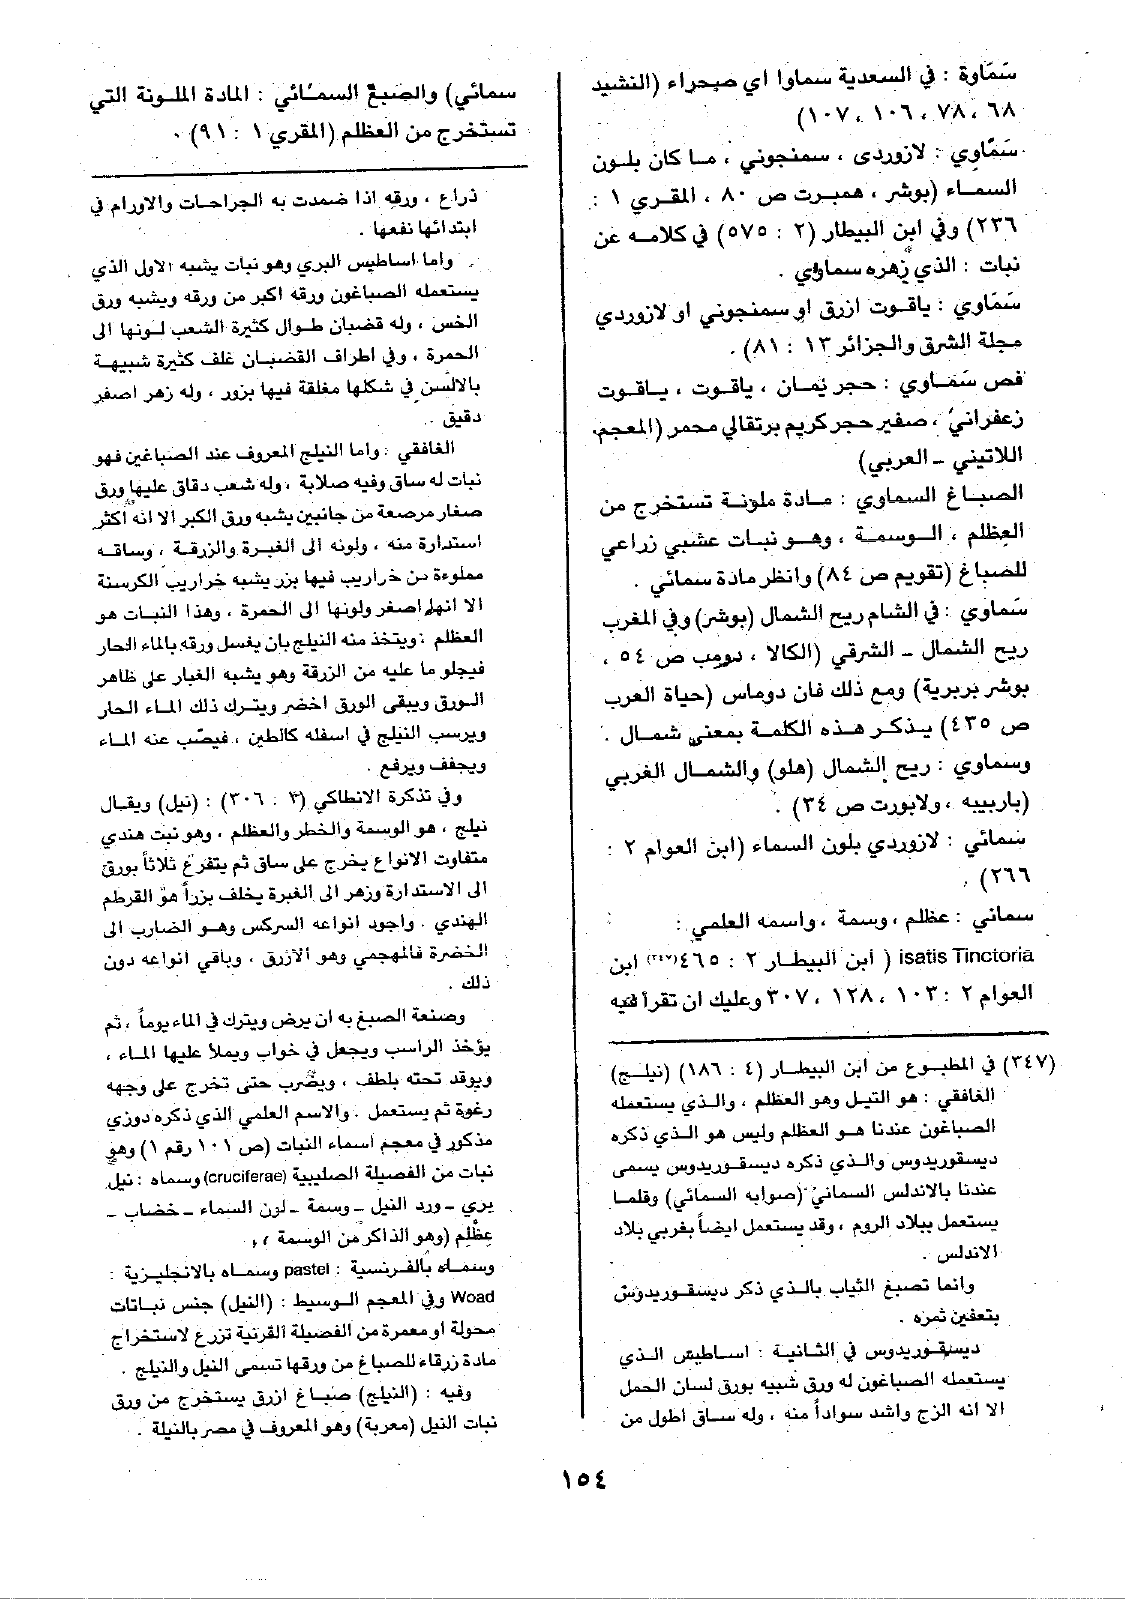 سَمَاوة : في السعدية سماوا اي صحراء (النشيد
٦٨ ، ٧٨ ، ١٠٦ ، ١٠٧)
سَمَّاوي : لازوردى ، سمنجوني ، مـا كان بلون
السمـاء (بوشر ، همبـرت ص ٨٠ ، المقـري ١ :
٢٣٦) وفي ابن البيطار (٢ : ٥٧٥) في كلامـه عن
نبات : الذي زهره سماوي .
سَمَاوي : ياقـوت ازرق او سمنجوني او لازوردي
مجلة الشرق والجزائر ١٣ : ٨١) .
فص سَمَـاوي : حجر يَمـان ، ياقوت ، يـاقـوت
زعفراني ، صفير حجر كريم برتقالي محمر (المعجم
اللاتيني – العربي)
الصبـاغ السماوي : مـادة ملونة تستخرج من
العظلم ، الـوسمـة ، وهـو نبـات عشبي زراعي
للصباغ (تقويم ص ٨٤) وانظر مادة سمائي .
سَماوي : في الشام ريح الشمال (بوشر) وفي المغرب
ريح الشمال – الشرقي (الكالا ، دومب ص ٥٤ ،
بوشر بربرية) ومع ذلك فان دوماس (حياة العرب
ص ٤٣٥) يـذكـر هـذه الكلمـة بمعنى شمـال .
وسماوي : ريح الشمال (هلو) والشمال الغربي
(باربييه ، ولابورت ص ٣٤) .
سَمائي : لازوردي بلون السماء (ابن العوام ٢ :
٢٦٦) .
سمـائي : عظلم ، وسمة ، واسمه العلمي :
isatis Tinctoria ( ابن البيطـار ٢ : ٤٦٥(٣٤٧) ابن
العوام ٢ : ١٠٣ ، ١٢٨ ، ٣٠٧ وعليك ان تقرأ فيه
(٣٤٧) في المطبـوع من ابن البيطـار (٤ : ١٨٦) (نيلـج)
الغافقي : هو النيل وهو العظلم ، والـذي يستعمله
الصباغون عندنا هـو العظلم وليس هو الـذي ذكره
ديسقوريدوس والـذي ذكره ديسقـوريدوس يسمى
عندنا بالاندلس السماني (صوابه السمائي) وقلمـا
يستعمل ببلاد الروم ، وقد يستعمل ايضاً بغربي بلاد
الاندلس .
وانما تصبغ الثياب بالـذي ذكر ديسقـوريدوس
بتعفين ثمره .
ديسقـوريدوس في الثـانيـة : اسـاطيس الـذي
يستعمله الصباغون له ورق شبيه بورق لسان الحمل
الا انه الزج واشد سواداً منه ، وله سـاق اطول من
سمائي) والصبغ السمـائي : المادة الملـونة التي
تستخرج من العظلم (المقري ١ : ٩١) .
ذراع ، ورقه اذا ضمدت به الجراحـات والاورام في
ابتدائها نفعها .
واما اساطيس البري وهو نبات يشبه الاول الذي
يستعمله الصباغون ورقه اكبر من ورقه ويشبه ورق
الخس ، وله قضبان طـوال كثيرة الشعب لـونها الى
الحمرة ، وفي اطراف القضبـان غلف كثيرة شبيهـة
بالالسن في شكلها مغلقة فيها بزور ، وله زهر اصفر
دقيق .
الغافقي : واما النيلج المعروف عند الصباغين فهو
نبات له ساق وفيه صلابة ، وله شعب دقاق عليها ورق
صغار مرصعة من جانبين يشبه ورق الكبر الا انه أكثر
استدارة منه ، ولونه الى الغبرة والزرقـة ، وساقـه
مملوءة من خراريب فيها بزر يشبه خراريب الكرسنة
الا انها اصغر ولونها الى الحمرة ، وهذا النبات هو
العظلم : ويتخذ منه النيلج بان يغسل ورقه بالماء الحار
فيجلو ما عليه من الزرقة وهو يشبه الغبار على ظاهر
الـورق ويبقى الورق اخضر ويتـرك ذلك المـاء الحار
ويرسب النيلج في اسفله كالطين ، فيصّب عنه المـاء
ويجفف ويرفع .
وفي تذكرة الانطاكي (٣ : ٣٠٦) : (نيل) ويقـال
نيلج ، هـو الوسمـة والخطر والعظلم ، وهـو نبت هندي
متفاوت الانواع يخرج على ساق ثم يتفرع ثلاثاً بورق
الى الاستدارة وزهر الى الغبرة يخلف بزراً هو القرطم
الهندي . واجود انواعه السركس وهـو الضارب الى
الخضرة فالمهجمي وهو الازرق ، وباقي انواعه دون
ذلك .
وصنعة الصبغ به ان يرض ويترك في الماء يوماً ، ثم
يؤخذ الراسب ويجعل في خواب ويملأ عليها المـاء ،
ويوقد تحته بلطف ، ويضرب حتى تخرج على وجهه
رغوة ثم يستعمل . والاسم العلمي الذي ذكره دوزي
مذكور في معجم اسماء النبات (ص ١٠١ رقم ١) وهو
نبات من الفصيلة الصليبية (cruciferae) وسماه : نيل
بري – ورد النيل – وسمة – لون السماء – خضاب –
عظْلِم (وهو الذاكر من الوسمة) ،
وسماه بالفرنسية : pastel وسمـاه بالانجليزية :
Woad وفي المعجم الـوسيط : (النيل) جنس نبـاتات
محولة او معمرة من الفصيلة القرنية تزرع لاستخراج
مادة زرقاء للصباغ من ورقها تسمى النيل والنيلج .
وفيه : (النيلج) صبـاغ ازرق يستخرج من ورق
نبات النيل (معربة) وهو المعروف في مصر بالنيلة .
١٥٤